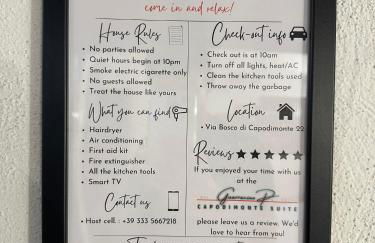 come in and relax!
House Rules
• No parties allowed
• Quiet hours begin at 10pm
• Smoke electric cigarette only
• No guests allowed
• Treat the house like yours
Check-out info
• Check out is at 10am
• Turn off all lights, heat/AC
• Clean the kitchen tools used
• Throw away the garbage
What you can find
• Hairdryer
• Air conditioning
• First aid kit
• Fire extinguisher
• All the kitchen tools
• Smart TV
Location
• Via Bosco di Capodimonte 22
Reviews
If you enjoyed your time with us
at the
CAPODIMONTE SUITE
please leave us a review. We'd
love to hear from you!
Contact us
• Host cell. : +39 333 5667218